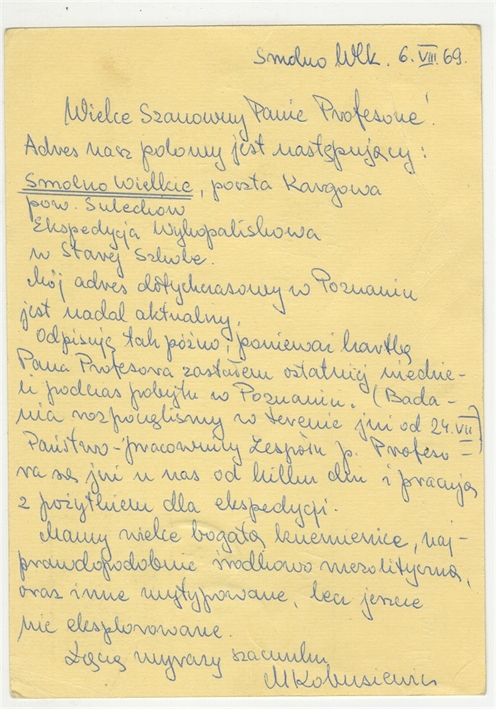 Smolno Wlk. 6.VIII.69.
Wielce Szanowny Panie Profesorze!
Adres nasz polowy jest następujący:
Smolno Wielkie, poczta Kargowa
pow. Sulechów
Ekspedycja Wykopaliskowa
w Starej Szkole.
Mój adres dotychczasowy w Poznaniu
jest nadal aktualny.
Odpisuję tak późno, ponieważ kartkę
Pana Profesora zastałem ostatniej niedzie-
li podczas pobytu w Poznaniu. (Bada-
nia rozpoczęliśmy w terenie już od 24.VII)
Państwo-pracownicy Zespołu p. Profeso-
ra są już u nas od kilku dni i pracują
z pożytkiem dla ekspedycji.
Mamy wielce bogatą krzemienicę, naj-
prawdopodobnie środkowo mezolityczną,
oraz inne wytypowane, lecz jeszcze
nie eksplorowane.
Łączę wyrazy szacunku
MKobusiewicz